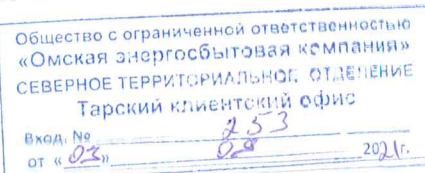 Общество с ограниченной ответственностью
«Омская энергосбытовая компания»
СЕВЕРНОЕ ТЕРРИТОРИАЛЬНОЕ ОТДЕЛЕНИЕ
Тарский клиентский офис
Вход. № 253
от «03» 09 2021г.